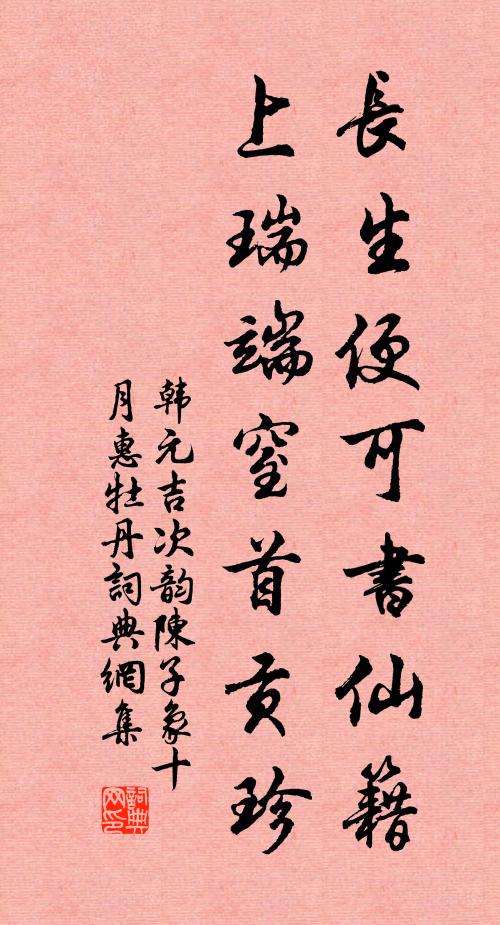 長生便可書仙籍
上瑞端窒首貢珍
韩元吉次韵陳子象十
月惠牡丹詞典網集
詞典網印